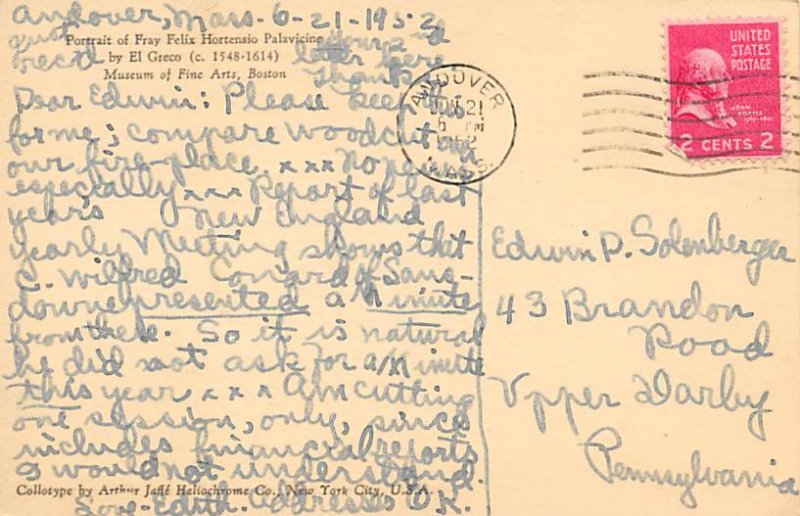 Andover, Mass. 6-21-1952
Just
rec'd
your 2nd
letter here
Thanks
Portrait of Fray Felix Hortensio Palavicino
by El Greco (c. 1548-1614)
Museum of Fine Arts, Boston
Dear Edwin: Please keep this
for me; compare woodcut
our fire-place. x x x No news
especially x x x Report of last
year's New England
Yearly Meeting shows that
C. Wilfred Conard of Lans-
downe presented a Minute
from there. So it is natural
he did not ask for a Minute
this year x x x Am cutting
one session, only, since
includes financial reports
I would not understand.
Collotype by Arthur Jaffé Heliochrome Co., New York City, U.S.A.
Love - Edith. Addresses O.K.
ANDOVER
JUN 21
PM
1952
MASS.
UNITED
STATES
POSTAGE
JOHN
ADAMS
2 CENTS 2
Edwin D. Solenberger
43 Brandon
Road
Upper Darby
Pennsylvania